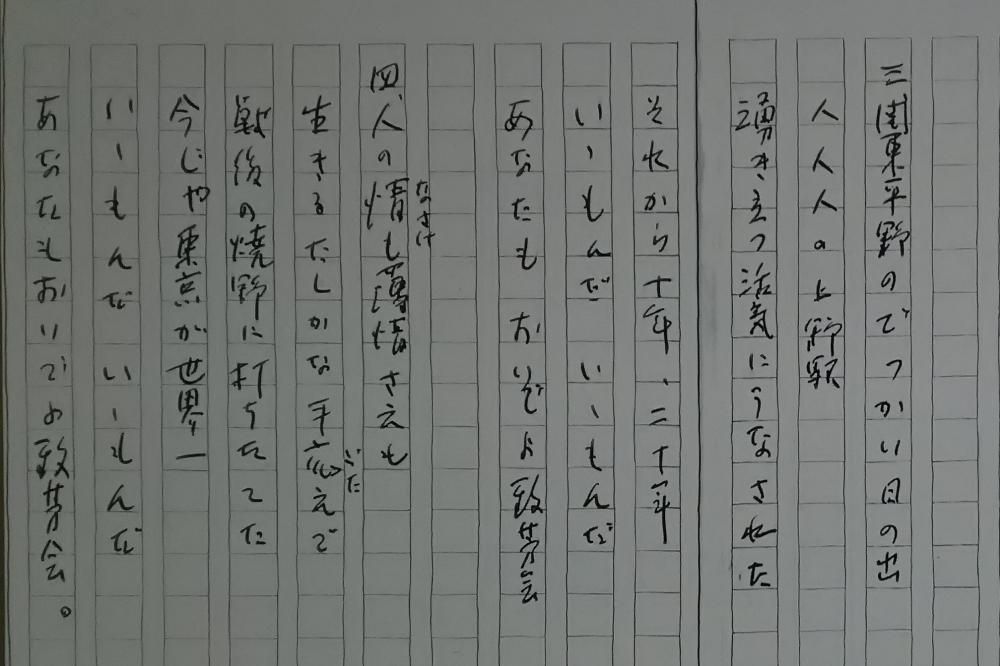 三 関東平野のでっかい日の出
人人人の上野駅
湧き立つ活気にうなされた
それから十年、二十年
いゝもんだ いゝもんだ
あなたも おいでよ 致芳会
四、人の情も薄情さえも
なさけ
生きるたしかな手応えで
ごた
戦後の焼野に打ちたてた
今じゃ東京が世界一
いゝもんだ いゝもんだ
あなたもおいでよ致芳会。